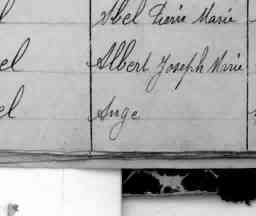 l Abel Pierre Marie
el Albert Joseph Marie
el Ange